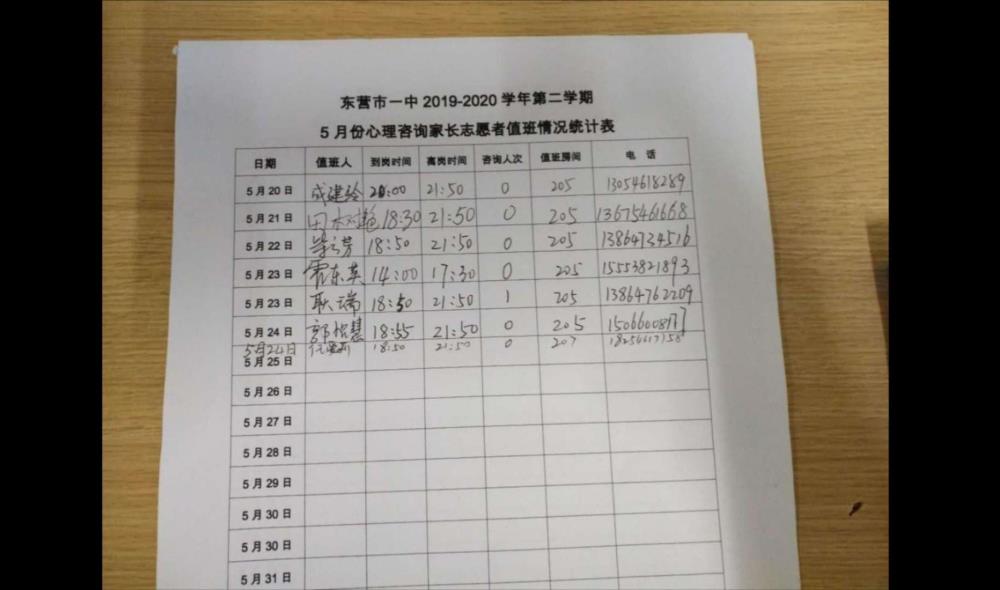 东营市一中 2019-2020 学年第二学期
5 月份心理咨询家长志愿者值班情况统计表
日期 值班人 到岗时间 离岗时间 咨询人次 值班房间 电 话
5 月 20 日 成建玲 20:00 21:50 0 205 13054618289
5 月 21 日 18:30 21:50 0 205 13675461668
5 月 22 日 18:50 21:50 0 205 13864734516
5 月 23 日 霍东英 14:00 17:30 0 205 15553821893
5 月 23 日 耿瑞 18:50 21:50 1 205 13864762209
5 月 24 日 18:55 21:50 0 205
5月24日 18:50 21:50 0 207
5 月 25 日
5 月 26 日
5 月 27 日
5 月 28 日
5 月 29 日
5 月 30 日
5 月 30 日
5 月 31 日